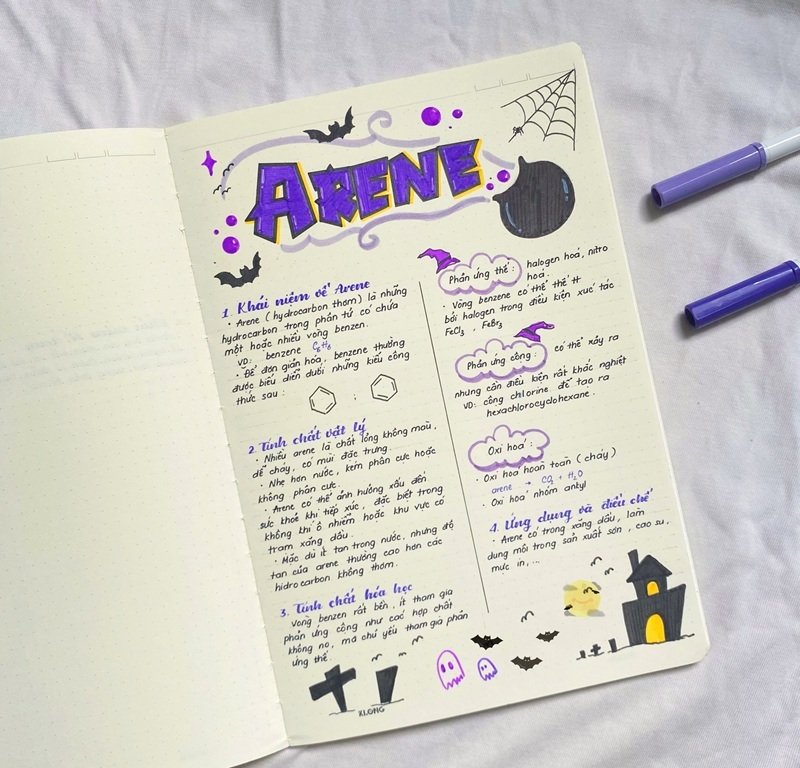 ARENE
1. Khái niệm về Arene
• Arene (hydrocarbon thơm) là những
hydrocarbon trong phân tử có chứa
một hoặc nhiều vòng benzen.
VD: benzene C6H6
• Để đơn giản hóa, benzene thường
được biểu diễn dưới những kiểu công
thức sau:
;
2. Tính chất vật lý
• Nhiều arene là chất lỏng không màu,
dễ cháy, có mùi đặc trưng.
• Nhẹ hơn nước, kém phân cực hoặc
không phân cực.
• Arene có thể ảnh hưởng xấu đến
sức khoẻ khi tiếp xúc, đặc biệt trong
không khí ô nhiễm hoặc khu vực có
trạm xăng dầu.
• Mặc dù ít tan trong nước, nhưng độ
tan của arene thường cao hơn các
hidrocarbon không thơm.
3. Tính chất hóa học
Vòng benzen rất bền, ít tham gia
phản ứng cộng như các hợp chất
không no, mà chủ yếu tham gia phản
ứng thế.
KLONG
Phản ứng thế: halogen hoá, nitro
hoá.
• Vòng benzene có thể thế H
bởi halogen trong điều kiện xúc tác
FeCl3, FeBr3
Phản ứng cộng: có thể xảy ra
nhưng cần điều kiện rất khắc nghiệt
VD: cộng chlorine để tạo ra
hexachlorocyclohexane.
Oxi hoá:
• Oxi hoá hoàn toàn (cháy)
arene → CO2 + H2O
• Oxi hoá nhóm ankyl
4. Ứng dụng và điều chế
• Arene có trong xăng dầu, làm
dung môi trong sản xuất sơn, cao su,
mực in,...